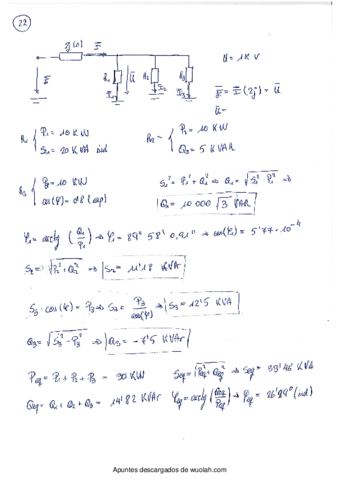 22
Zj(Ω) I
U = 1 KV
E R1 U R2 R3
I1 I2 I3
E = I (Zj) + U
U =
R1 { P1 = 10 KW
S1 = 20 KVA ind
R2 { P2 = 10 KW
Q2 = 5 KVAR
R3 { P3 = 10 KW
cos(φ) = 0'8 (cap)
S1² = P1² + Q1² ⇒ Q1 = √S1² - P1² ⇒
Q1 = 10 000 √3 VAR
φ1 = arctg (Q1/P1) ⇒ φ1 = 89º 58' 0,91" ⇒ cos(φ1) = 5'77·10⁻⁴
S2 = √P2² + Q2² ⇒ S2 = 11'18 KVAr
S3 · cos(φ) = P3 ⇒ S3 = P3/cos(φ) ⇒ S3 = 12'5 KVA
Q3 = √S3² - P3² ⇒ Q3 = - 7'5 KVAr
Peq = P1 + P2 + P3 = 30 KW Seq = √Peq² + Qeq² ⇒ Seq = 33'46 KVA
Qeq = Q1 + Q2 + Q3 = 14'82 KVAr φeq = arctg (Qeq/Peq) ⇒ φeq = 26'29º (ind)
Apuntes descargados de wuolah.com